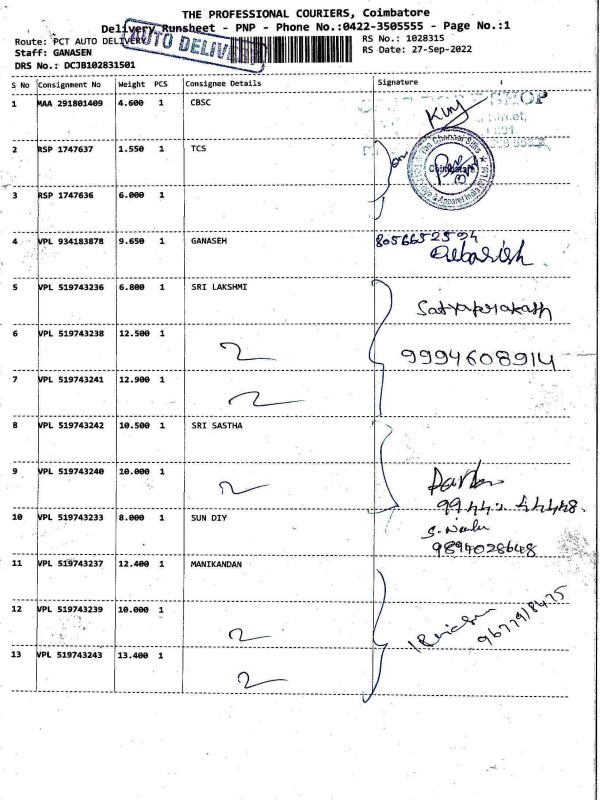 THE PROFESSIONAL COURIERS, Coimbatore
Delivery Runsheet - PNP - Phone No.:0422-3505555 - Page No.:1
Route: PCT AUTO DELIVERY
AUTO DELIVERY
RS No.: 1028315
Staff: GANASEN
RS Date: 27-Sep-2022
DRS No.: DCJB102831501
S No Consignment No Weight PCS Consignee Details Signature
1 MAA 291801409 4.600 1 CBSC
2 RSP 1747637 1.550 1 TCS
The Chennai Silks
Coimbatore
3 RSP 1747636 6.000 1
4 VPL 934183878 9.650 1 GANASEH 8056652594
Debasish
5 VPL 519743236 6.800 1 SRI LAKSHMI
Satyaprakash
6 VPL 519743238 12.500 1
9994608914
7 VPL 519743241 12.900 1
8 VPL 519743242 10.500 1 SRI SASTHA
9 VPL 519743240 10.000 1
10 VPL 519743233 8.000 1 SUN DIY
9894028648
11 VPL 519743237 12.400 1 MANIKANDAN
12 VPL 519743239 10.000 1
9677918475
13 VPL 519743243 13.400 1